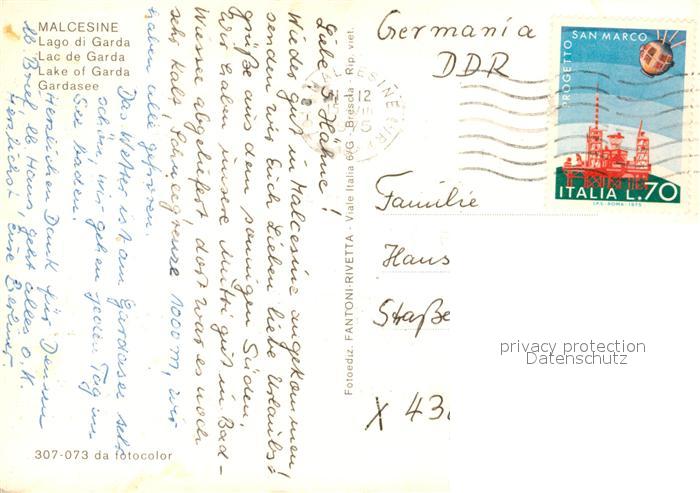 MALCESINE
Lago di Garda
Lac de Garda
Lake of Garda
Gardasee
Liebe 5 Hähne!
Wieder gut in Malcesine angekommen!
senden wir Euch Lieben liebe Urlaubs=
grüße aus dem sonnigen Süden.
Wir haben unsere Mutti gut in Bad-
Wiessee abgeliefert dort war es noch
sehr kalt, Schneegrenze 1000 m, wir
haben alle gefroren.
Das Wetter ist am Gardasee sehr
schön, wir gehen jeden Tag im
See baden.
Herzlichen Dank für Deinen
lb. Brief lb Hans, geht alles o.K.
Herzlichst Eure Berliner
307-073 da fotocolor
Fotoediz. FANTONI-RIVETTA - Viale Italia 6/G - Brescia - Rip. viet.
Germania
DDR
12
Familie
Hans
Staße
X 43
PROGETTO SAN MARCO
ITALIA L.70
I.P.S.-ROMA-1975
privacy protection
Datenschutz